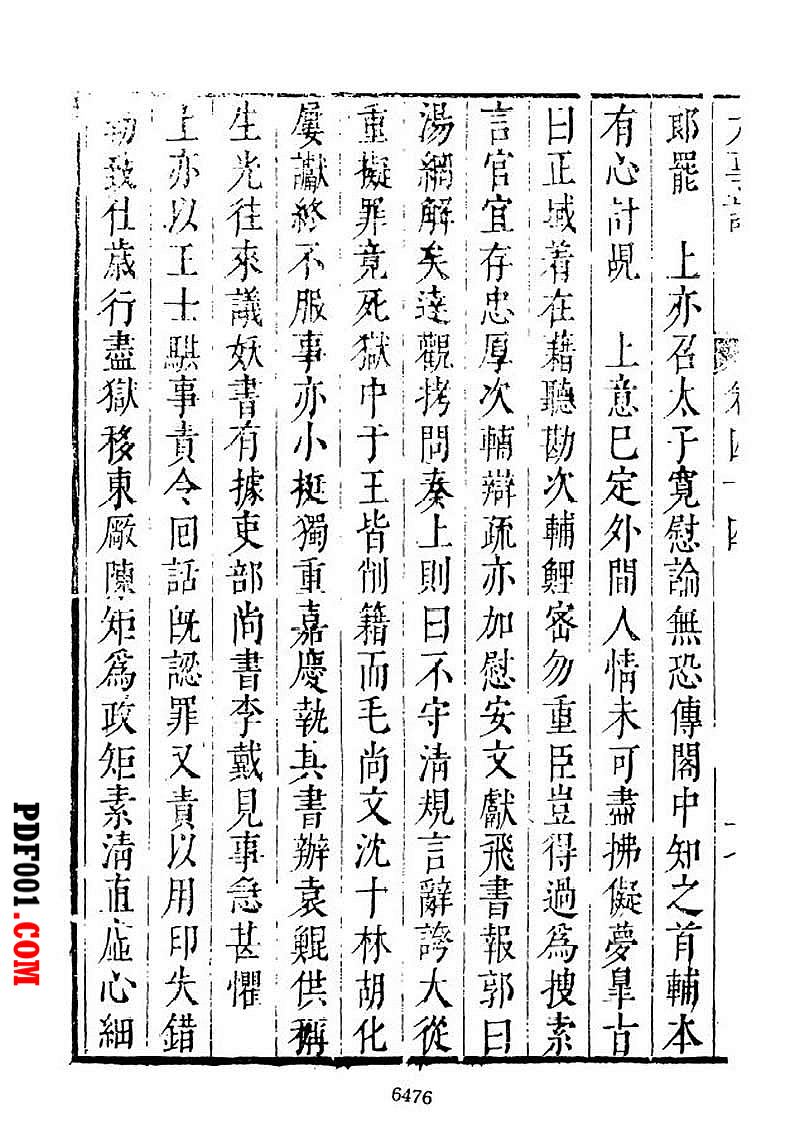 郎罷　上亦召太子寬慰論無恐傳閣中知之首輔本
有心計覘　上意已定外間人情未可盡拂儗夢臯古
曰正域着在藉聽勘次輔鯉密勿重臣豈得過爲搜索
言官宜存忠厚次輔辯疏亦加慰安文獻飛書報郭曰
湯網解矣逹觀拷問奏上則曰不守清規言辭誇大從
重擬罪竟死獄中于王皆削籍而毛尚文沈十林胡化
屢讞終不服事亦小挺獨重嘉慶執其書辦袁鯤供稱
生光徃來議妖書有據吏部尚書李戴見事急甚懼
上亦以王士騏事責令回話旣認罪又責以用印失錯
勒致仕歳行盡獄移東厰陳矩爲政矩素清直虛心細
卷四十四
6476
PDF001.COM